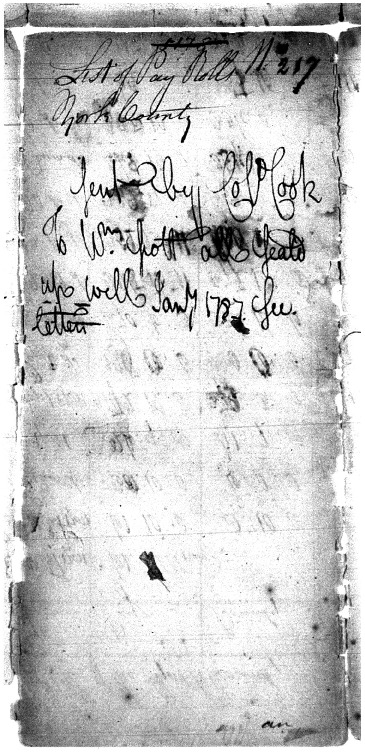 List of Pay Rolls No 217
York County
Sent by Colo Cook
To Wm Scott all Seald
up well Jany 1787. See
letter
an